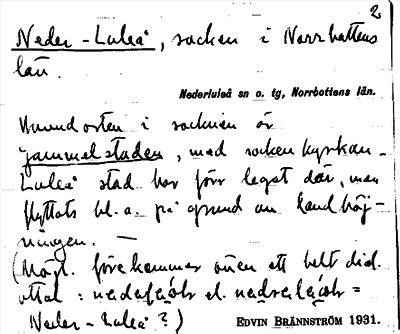 2
Neder-Luleå, socken i Norrbottens
län.
Nederluleå sn o. tg, Norrbottens län.
Huvudorten i socknen är
Gammelstaden, med sockenkyrkan.
Luleå stad har förr legat där, men
flyttats bl. a. på grund av landhöj-
ningen. —
(Möjl. förekommer även ett helt dial.
uttal: el. =
Neder-Luleå?)
EDVIN BRÄNNSTRÖM 1931.